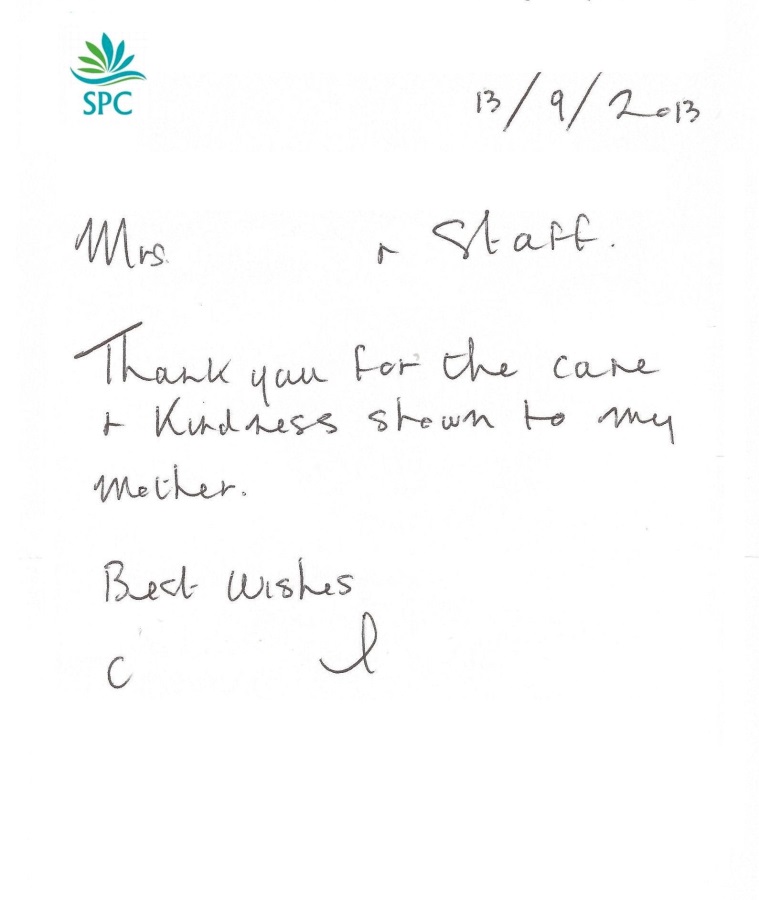 SPC
13/9/2013
Mrs. + Staff.
Thank you for the care
+ Kindness shown to my
mother.
Best Wishes
C l